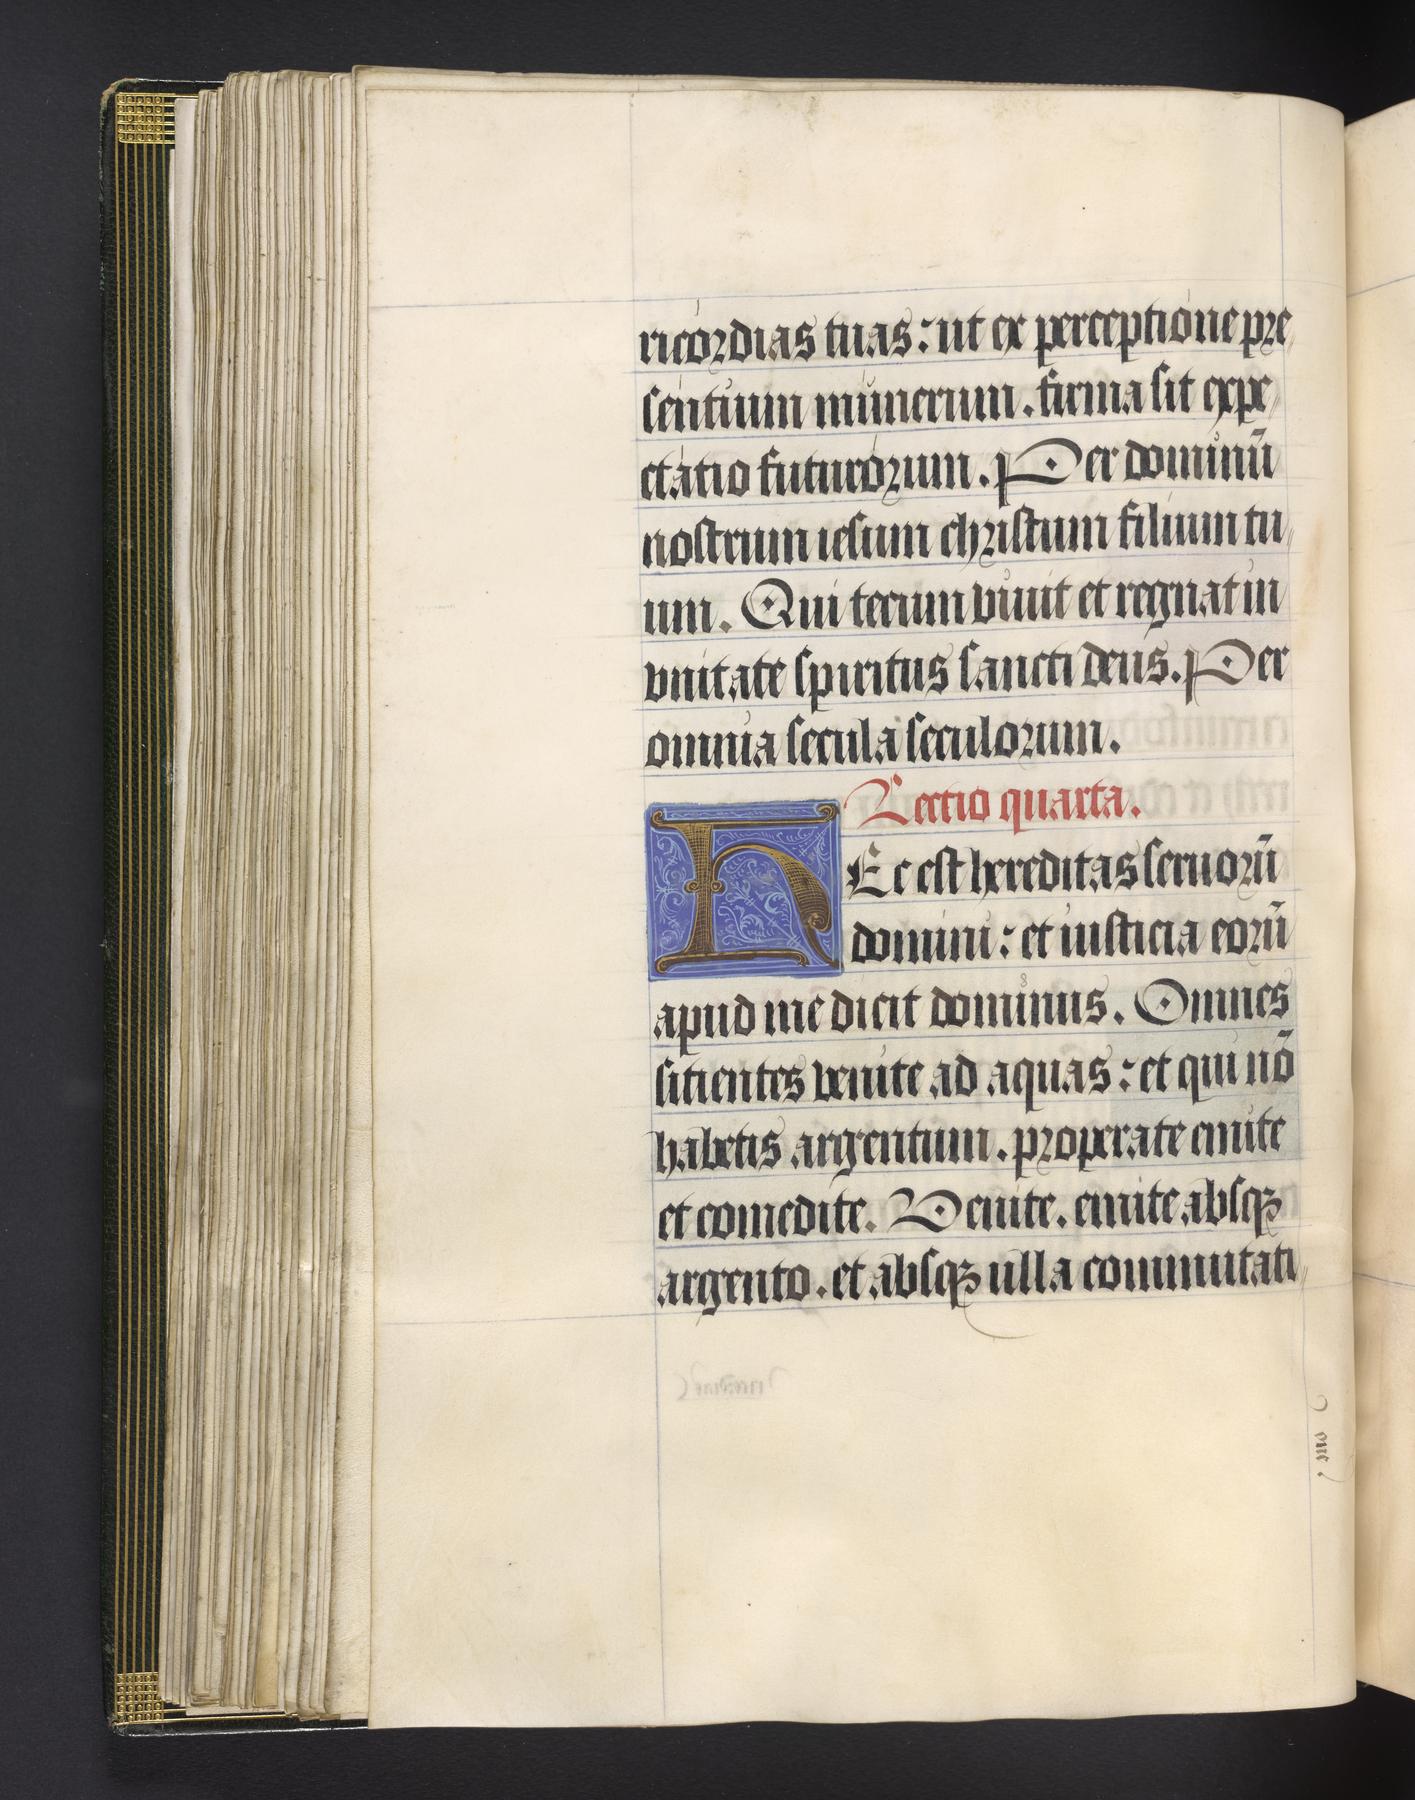 ricórdias tuas: ut ex perceptióne pre
séntium múnerum. firma sit expe
ctátio futurórum. Per dominū
nostrum iesum christum filium tu
um. Qui tecum vivit et regnat in
vnitate spiritus sancti deus. Per
omnia secula seculorum.
Lectio quarta.
HEc est hereditas seruorū
domini: et iusticia eorū
apud me dicit dominus. Omnes
sitientes venite ad aquas: et qui nō
habetis argentum. properate emite
et comedite. Venite. emite absqꝫ
argento. et absqꝫ ulla commutati